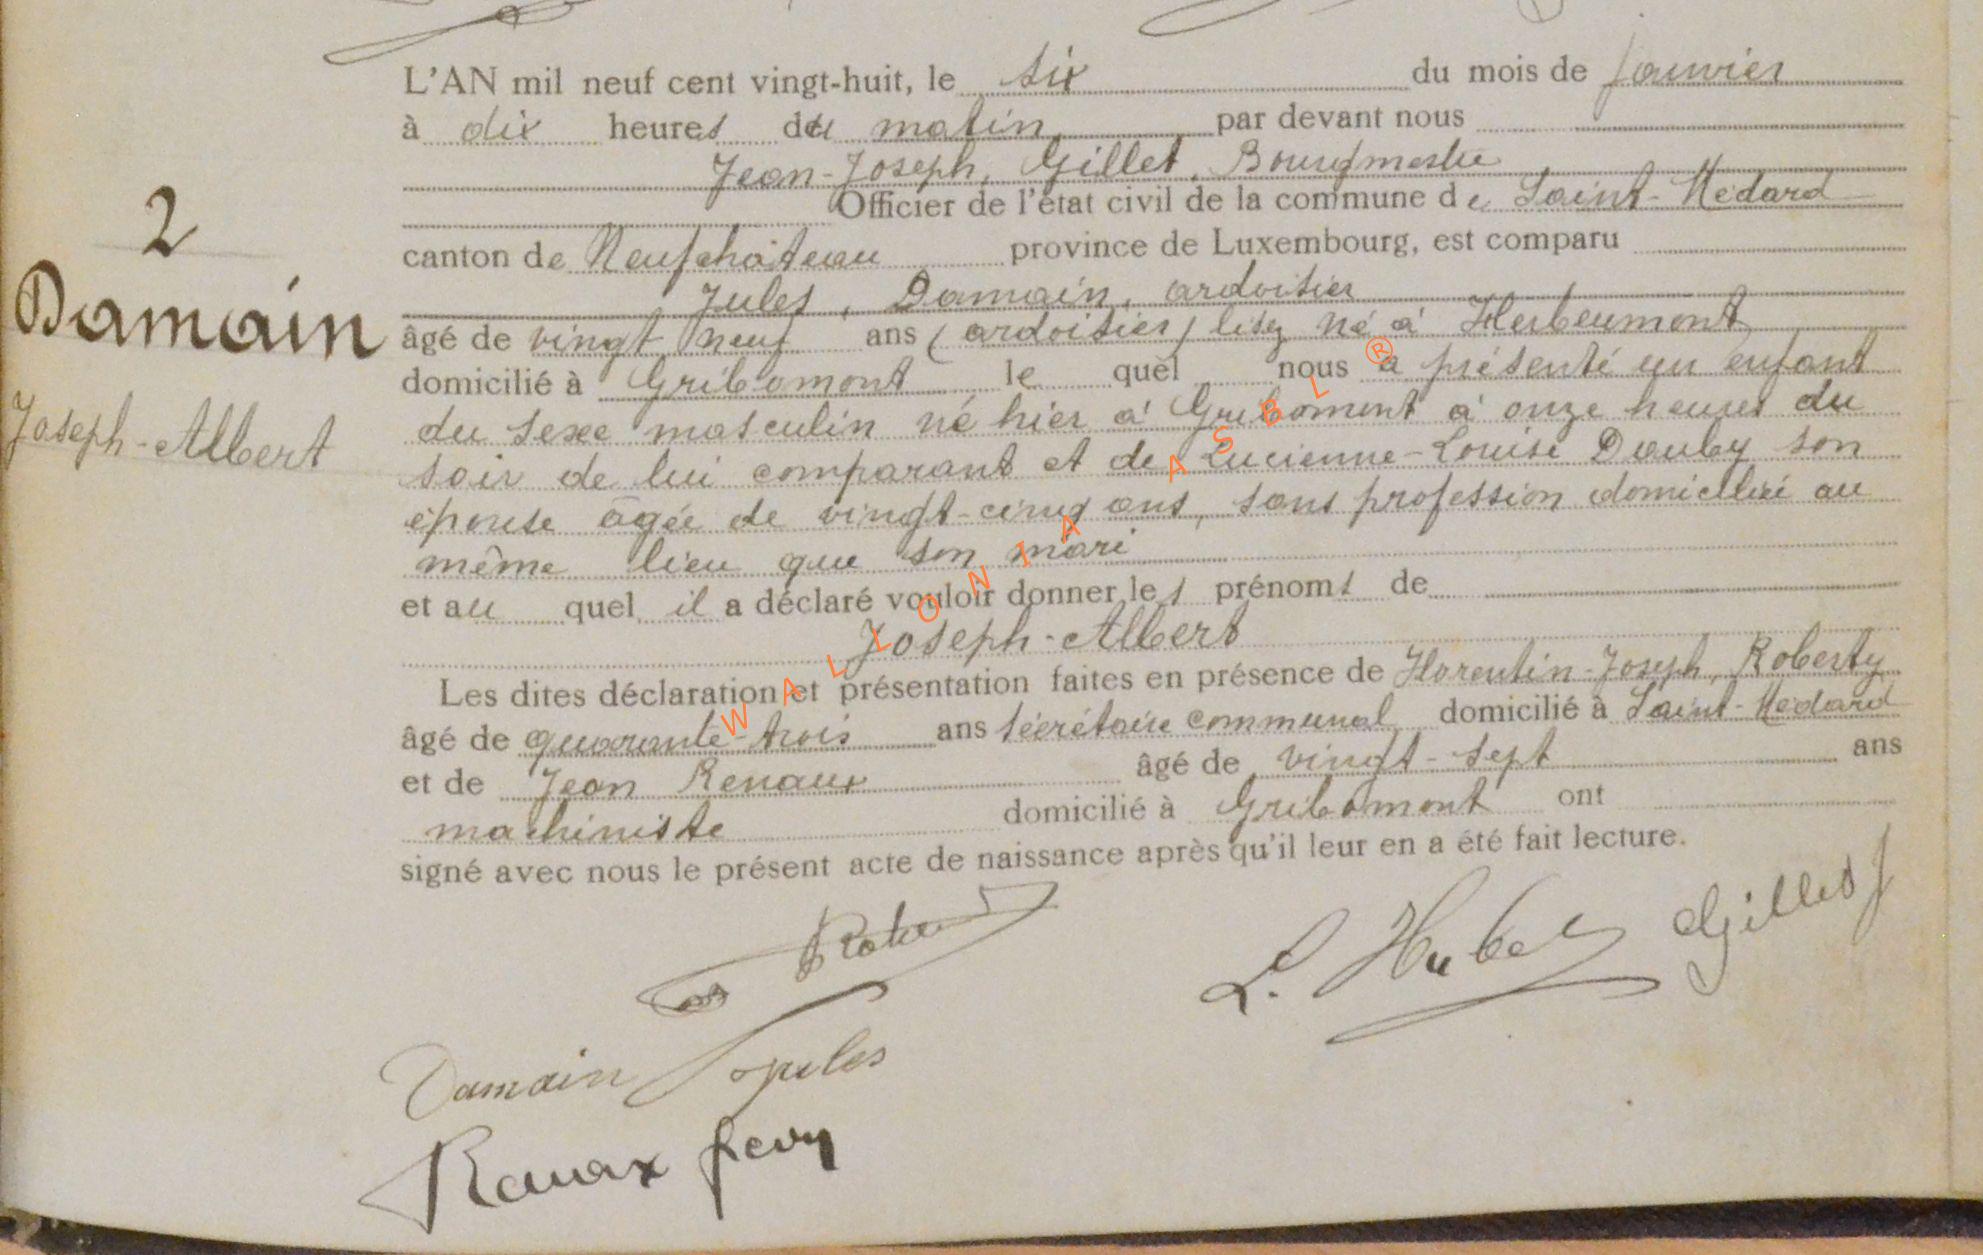 L'AN mil neuf cent vingt-huit, le six du mois de janvier
à dix heures du matin par devant nous
Jean-Joseph, Gillet, Bourgmestre
Officier de l'état civil de la commune de Saint-Médard
canton de Neufchâteau province de Luxembourg, est comparu
Jules, Damain, ardoisier
âgé de vingt neuf ans (ardoisier) lisez né à Herbeumont
domicilié à Gribomont le quel nous a présenté un enfant
du sexe masculin né hier à Gribomont à onze heures du
soir de lui comparant et de Lucienne-Louise Dauby son
épouse âgée de vingt-cinq ans, sans profession domiciliée au
même lieu que son mari
et au quel il a déclaré vouloir donner les prénoms de
Joseph-Albert
Les dites déclaration et présentation faites en présence de Florentin-Joseph, Roberty
âgé de quarante-trois ans sécrétaire communal domicilié à Saint-Médard
et de Jean Renaux âgé de vingt-sept ans
machiniste domicilié à Gribomont ont
signé avec nous le présent acte de naissance après qu'il leur en a été fait lecture.
2
Damain
Joseph-Albert
L. Huber Gillet J
Damain Jules
Renaux
WALLONIA ASBL ®